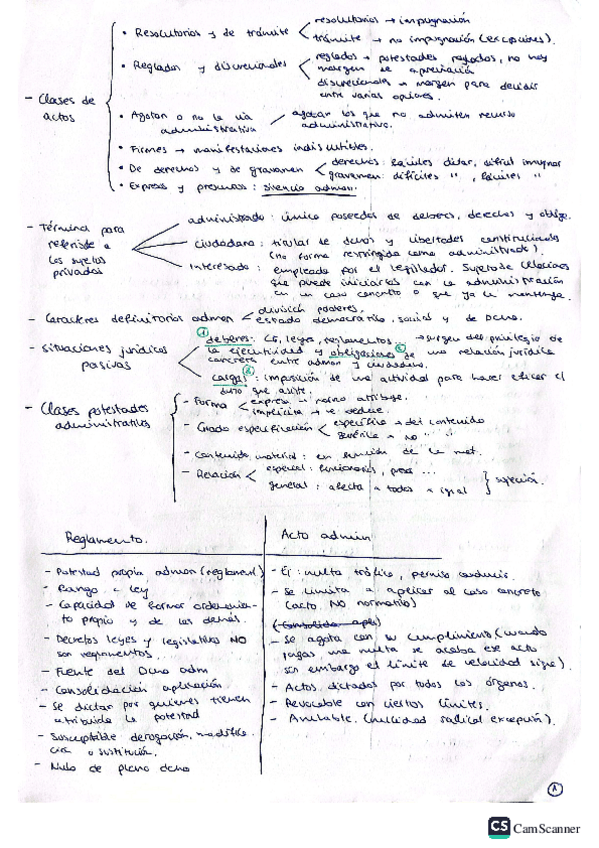 resolutorios → impugnación
• Resolutorios y de trámite
trámite → no impugnación (excepciones).
reglados → potestades regladas, no hay
• Reglados y discrecionales
margen de apreciación
discrecionales → margen para decidir
entre varias opciones.
- Clases de
actos
• Agotan o no la vía
administrativa
agotan los que no admiten recurso
administrativo.
• Firmes → manifestaciones indiscutibles.
• De derechos y de gravamen
derechos: fáciles dictar, difícil impugnar
gravamen: difíciles " , fáciles "
• Expresos y presuntos: silencio admon.
- Términos para
referirse a
los sujetos
privados
administrado: único poseedor de deberes, derechos y oblig.
ciudadano: titular de dchos y libertades constitucionales
(no forma restringida como administrado).
Interesado: empleado por el legislador. Sujeto de relaciones
que puede iniciarlas con la administración
en un caso concreto o que ya la mantenga.
- Caracteres definitorios admon
división poderes.
estado democrático, social y de Dcho.
- Situaciones jurídicas
pasivas
① deberes: CE, leyes, reglamentos → surgen del privilegio de
la ejecutividad y obligaciones de una relación jurídica
concreta entre admon y ciudadano.
cargas: imposición de una actividad para hacer eficaz el
dcho que asiste.
- Clases potestades
administrativas
- Forma
expresa → norma atribuye.
implícita → se deduce.
- Grado especificación
específica → det contenido
genérica → no " "
- Contenido material: en función de la mat.
- Relación
especial: funcionarios, presos ...
general: afecta a todos x igual
} sujeción.
Reglamento.
- Potestad propia admon (reglament)
- Rango < ley
- Capacidad de formar ordenamien-
to propio y de los demás.
- Decretos leyes y legislativos NO
son reglamentos.
- Fuente del Dcho adm
- Consolidación aplicación
- Se dictan por quienes tienen
atribuida la potestad
- Susceptible derogación, modifica-
ción o sustitución.
- Nulo de pleno dcho
Acto admin
- Ej: multa tráfico, permiso conducir.
- Se limita a aplicar al caso concreto
(acto NO normativo)
- Se agota con su cumplimiento (cuando
pagas una multa se acaba ese acto
sin embargo el límite de velocidad sigue).
- Actos dictados por todos los órganos.
- Revocable con ciertos límites.
- Anulable. (nulidad radical excepción).
CS CamScanner